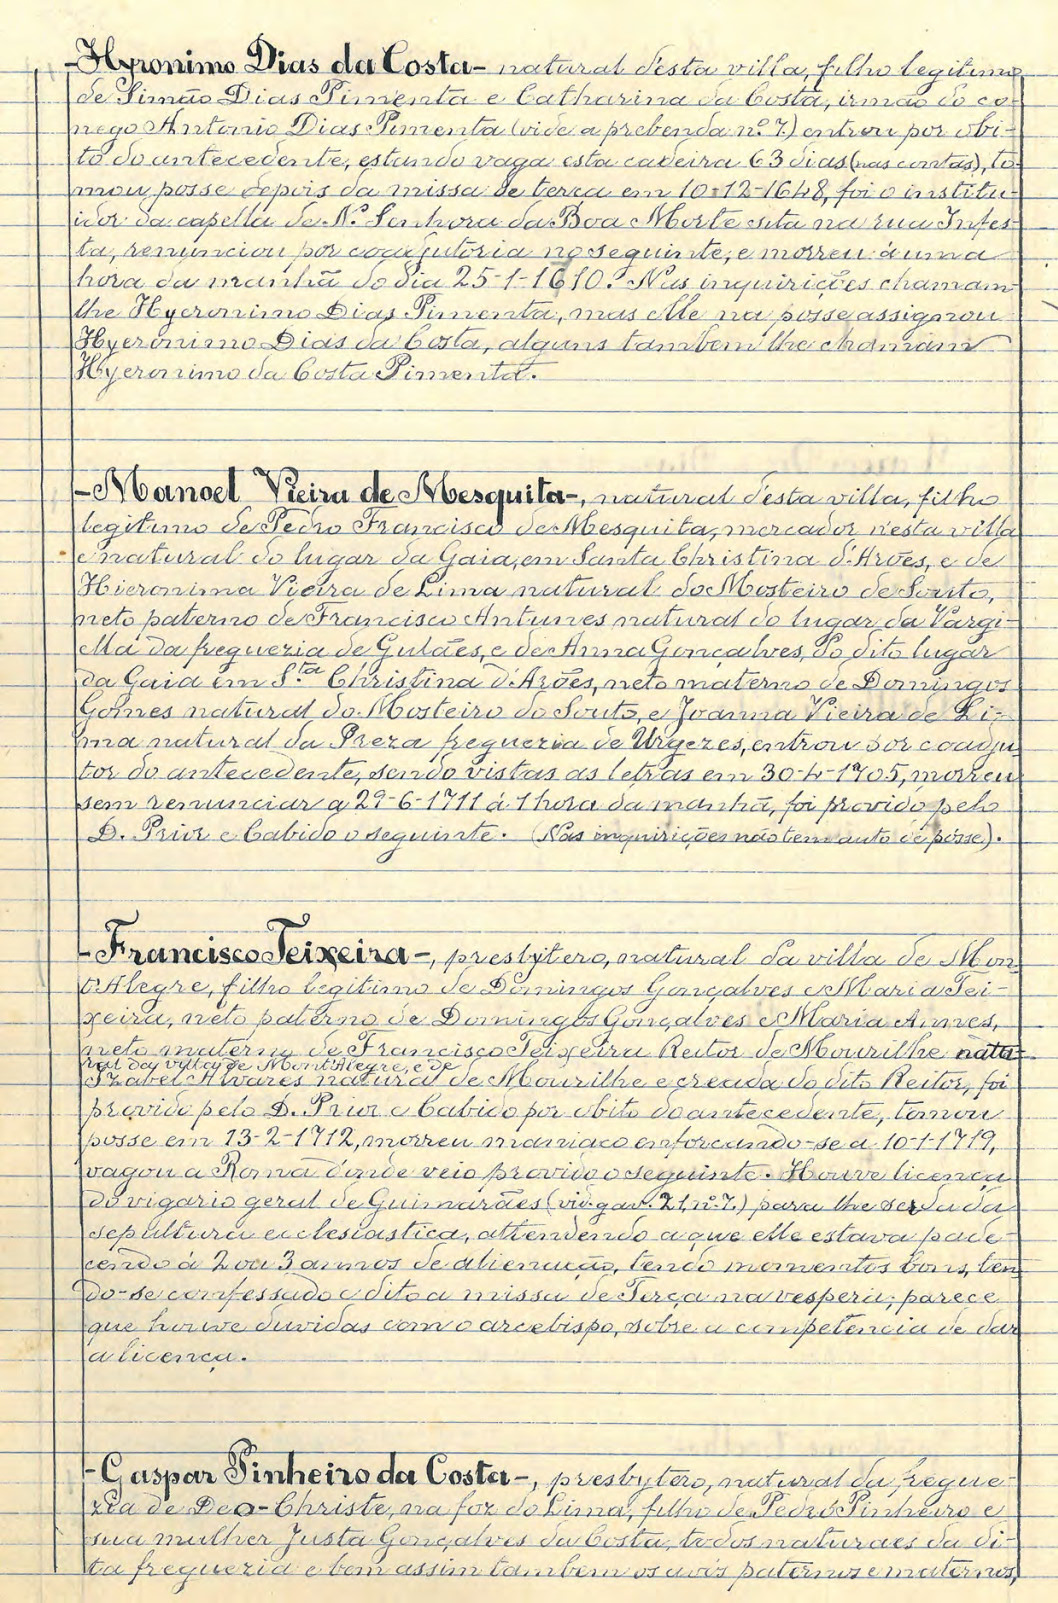 -Hyronimo Dias da Costa- natural d'esta villa, filho legitimo
de Simão Dias Pimenta e Catharina da Costa, irmão do co-
nego Antonio Dias Pimenta (vide a prebenda nº 7) entrou por obi-
to do antecedente, estando vaga esta cadeira 63 dias (nas contas), to-
mou posse depois da missa de terça em 10-12-1648, foi o institu-
idor da capella de N.ª Senhora da Boa Morte sita na rua Infes-
ta, renunciou por coadjutoria no seguinte, e morreu á uma
hora da manhã do dia 25-1-1710. Nas inquirições chamam-
lhe Hyeronimo Dias Pimenta, mas elle na posse assignou
Hyeronimo Dias da Costa, alguns tambem lhe chamam
Hyeronimo da Costa Pimenta.
-Manoel Vieira de Mesquita-, natural d'esta villa, filho
legitimo de Pedro Francisco de Mesquita, mercador n'esta villa
e natural do lugar da Gaia, em Santa Christina d'Arões, e de
Hieronima Vieira de Lima natural do Mosteiro de Souto,
neto paterno de Francisco Antunes natural do lugar da Vargi-
ella da freguezia de Gulães, e de Anna Gonçalves, do dito lugar
da Gaia em S.ta Christina d'Arões, neto materno de Domingos
Gomes natural do Mosteiro do Souto, e Joanna Vieira de Li-
ma natural da Preza freguezia de Urgezes, entrou por coadju-
tor do antecedente, sendo vistas as letras em 30-4-1705, morreu
sem renunciar a 29-6-1711 á 1 hora da manhã, foi provido pelo
D. Prior e Cabido o seguinte. (Nas inquirições não tem auto de posse).
-Francisco Teixeira-, presbytero, natural da villa de Mon-
t'Alegre, filho legitimo de Domingos Gonçalves e Maria Tei-
xeira, neto paterno de Domingos Gonçalves e Maria Annes,
neto materno de Francisco Teixeira Reitor de Mourilhe natu-
ral da villa de Mont'Alegre, e de
Izabel Alvares natural de Mourilhe e creada do dito Reitor, foi
provido pelo D. Prior e Cabido por obito do antecedente, tomou
posse em 13-2-1712, morreu maniaco enforcando-se a 10-1-1719,
vagou a Roma d'onde veio provido o seguinte. Houve licença
do vigario geral de Guimarães (vid. gav. 21, nº 7.) para lhe ser dada
sepultura ecclesiastica, attendendo a que elle estava pade-
cendo á 2 ou 3 annos de alienação, tendo momentos bons, ten-
do-se confessado e dito a missa de Terça na vespera; parece
que houve duvidas com o arcebispo, sobre a competencia de dar
a licença.
-Gaspar Pinheiro da Costa-, presbytero, natural da fregue-
zia de Deo-Christe, na foz do Lima, filho de Pedro Pinheiro e
sua mulher Justa Gonçalves da Costa, todos naturaes da di-
ta freguezia e bem assim tambem os avós paternos e maternos,